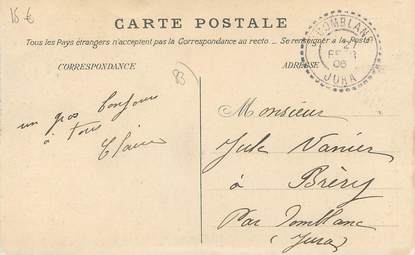 15 €
CARTE POSTALE
Tous les Pays étrangers n'acceptent pas la Correspondance au recto — Se renseigner à la Poste
CORRESPONDANCE
ADRESSE
DOMBLANS
FEVR
06
JURA
un gros bonjour
à Tous
Claire
Monsieur
Jule Vanier
à Bréry
Par Domblanc
(Jura)